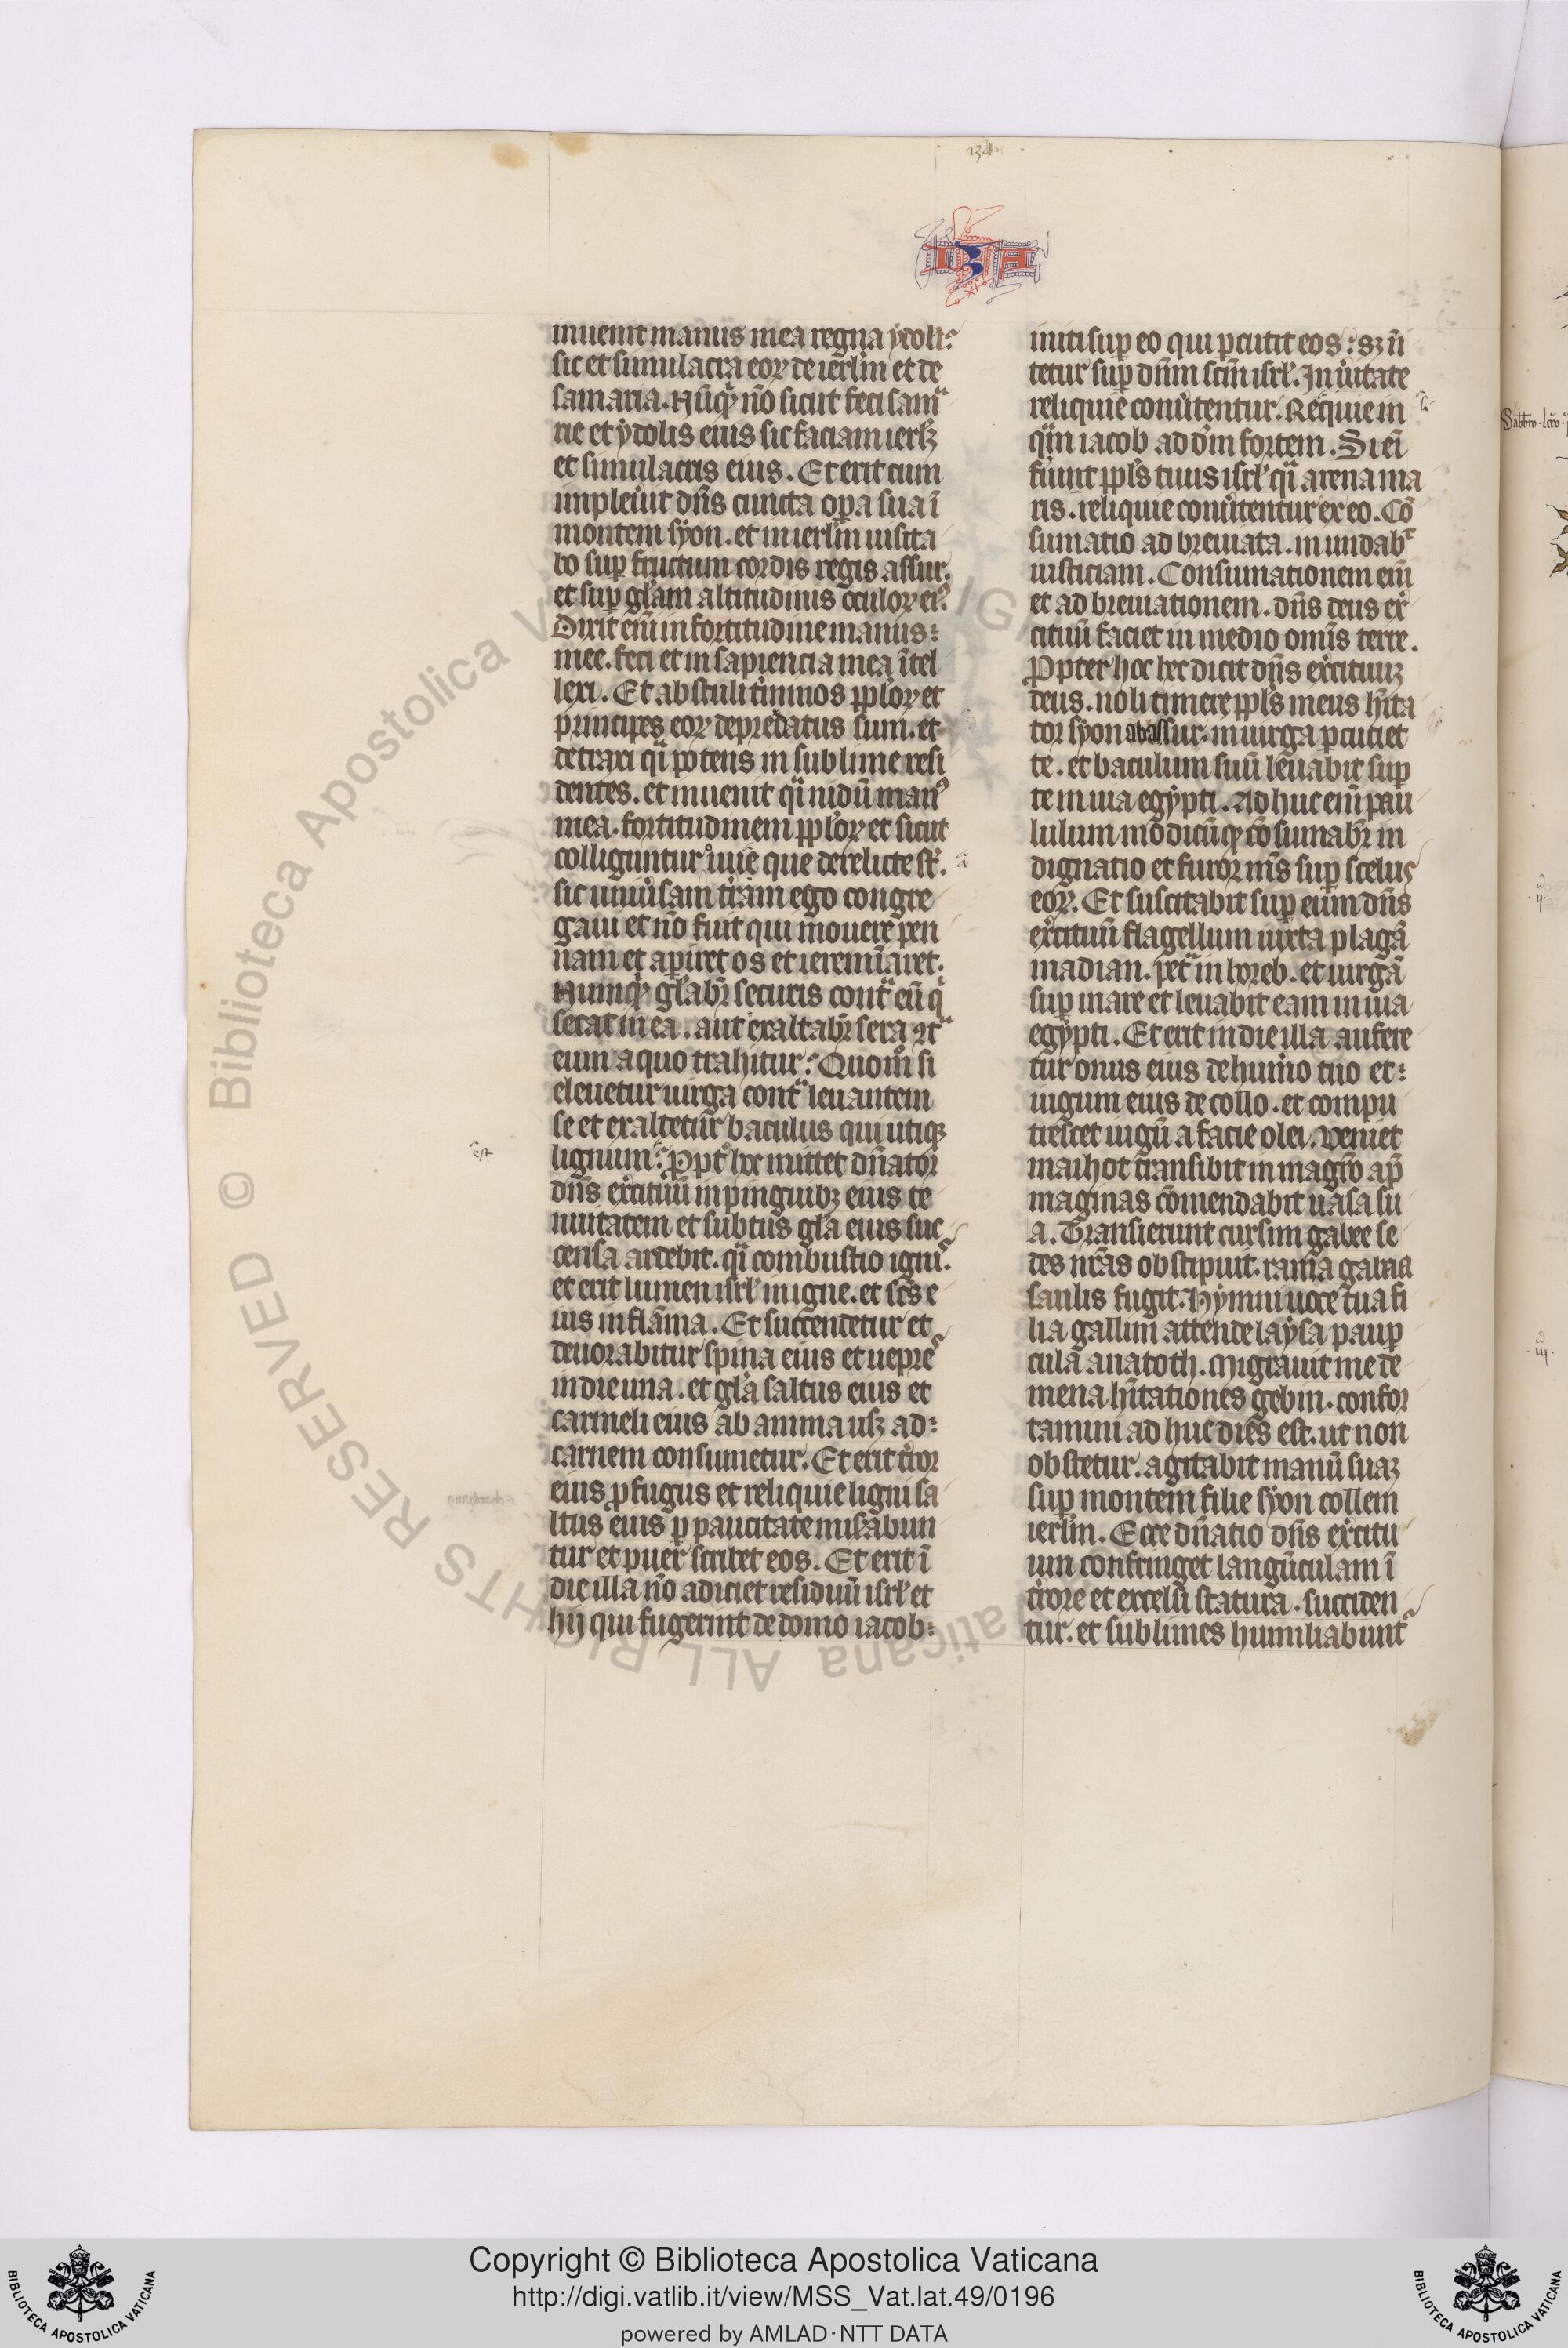 IZA
inuenit manus mea regna ydoli.
sic et simulacra eoꝝ de ierl̃m et de
samaria. Nũqͥd nõ sicut feci samͣ
rie et ydolis eius sic faciam ierlꝫ
et simulacris eius. Et erit cum
impleũit dñs cuncta oꝑa sua ĩ
montem syon. et in ierl̃m uisita
bo suꝑ fructum cordis regis assur.
et suꝑ gl̃am altitudinis oculoꝝ eiꝰ.
Dixit eĩ in fortitudine manus:
mee. feci et in sapiencia mea ĩtel
lexi. Et abstuli t̾minos ppl̃oꝝ et
principes eoꝝ depredatus sum. et
detraxi qͣi potens in sublime resi
dentes. et inuenit qͣi nidũ manꝰ
mea. fortitudinem ppl̃oꝝ et sicut
colliguntur oua que derelicte st̃.
sic uniũsam t̾ram ego congre
gaui et nõ fuit qui moueret pen
nam et aꝑiret os et
Numqͥd gl̃abr̃ securis contͣ eũ qͥ
secat in ea. aut exaltabr̃ sera ꝯtͣ
eum a quo trahitur. Quom̊ si
eleuetur uirga contͣ leuantem
se et exaltetur baculus qui utiqꝫ
lignum. Pꝓpt̾ hoc mittet dñator
dñs ex̾cituũ in pinguibꝫ eius te
nuitatem et subtus gl̃a eius suc
censa ardebit. qͣi combustio ignis.
et erit lumen isrl̃ in igne. et sc̃s e
ius in flãma. Et succendetur et
deuorabitur spina eius et uepres
in die una. et gl̃a saltus eius et
carmeli eius ab anima usqꝫ ad:
carnem consumetur. Et erit t̾ror
eius ꝓfugus et reliquie ligni sa
ltus eius p̱ paucitate nũabun
tur et puer scribet eos. Et erit ĩ
die illa nõ adiciet residuũ isrl̃ et
hij qui fugerint de domo iacob:
initi suꝑ eo qui ꝑcutit eos: sꝫ ñ
tetur suꝑ dñm sc̃m isrl̃. In ũitate
reliquie conũtentur. Reliquie in
qͣm iacob ad dm̃ fortem. Si eĩ
fũint ppl̃s tuus isrl̃ qͣi arena ma
ris. reliquie conũtentur ex eo. Cõ
sumatio adbreuiata. inundabͭ
iusticiam. Consumationem eĩ
et adbreuiationem. dñs deus ex̾
cituũ faciet in medio omĩs terre.
Pꝓpter hoc hec dicit dñs ex̾cituuꝫ
deus. noli timere ppl̃s meus hĩta
tor syon ab assur. in uirga ꝑcutiet
te. et baculum suũ leuabit suꝑ
te in uia egypti. Ad huc eĩ pau
lulum modicũqꝫ cõsumabr̃ in
dignatio et furor m̃s suꝑ scelus
eoꝝ. Et suscitabit suꝑ eum dñs
ex̾cituũ flagellum iuxta plagã
madian. petͣ in horeb. et uirgã
suꝑ mare et leuabit eam in uia
egypti. Et erit in die illa aufere
tur onus eius de hum̾o tuo et:
iugum eius de collo. et compu
trescet iugũ a facie olei. Veniet
maihot transibit in magro apd̃
maginas cõmendabit uasa su
a. Transierunt cursim gabee se
des nr̃as obstipuit. rama gabaa
saulis fugit. Hymni uoce tua fi
lia gallim attende laysa pauꝑ
culã anatoth. Migrauit mede
mena hĩtationes gebim. confor
tamini ad huc dies est. ut non
obstetur. agitabit manũ suaꝫ
suꝑ montem filie syon collem
ierl̃m. Ecce dñatio dñs ex̾citu
um confringet langũculam ĩ
t̾rore et excelsi statura. succiden
tur. et sublimes humiliabuntͬ
Copyright © Biblioteca Apostolica Vaticana
http://digi.vatlib.it/view/MSS_Vat.lat.49/0196
powered by AMLAD·NTT DATA
BIBLIOTECA APOSTOLICA VATICANA
BIBLIOTECA APOSTOLICA VATICANA